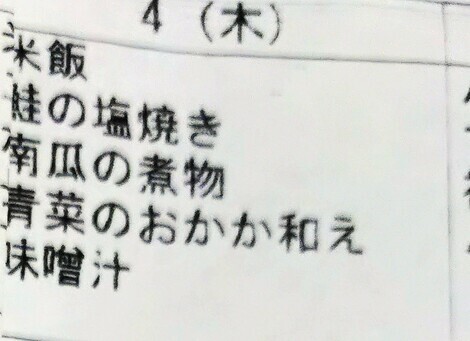 4（木）
米飯
鮭の塩焼き
南瓜の煮物
青菜のおかか和え
味噌汁